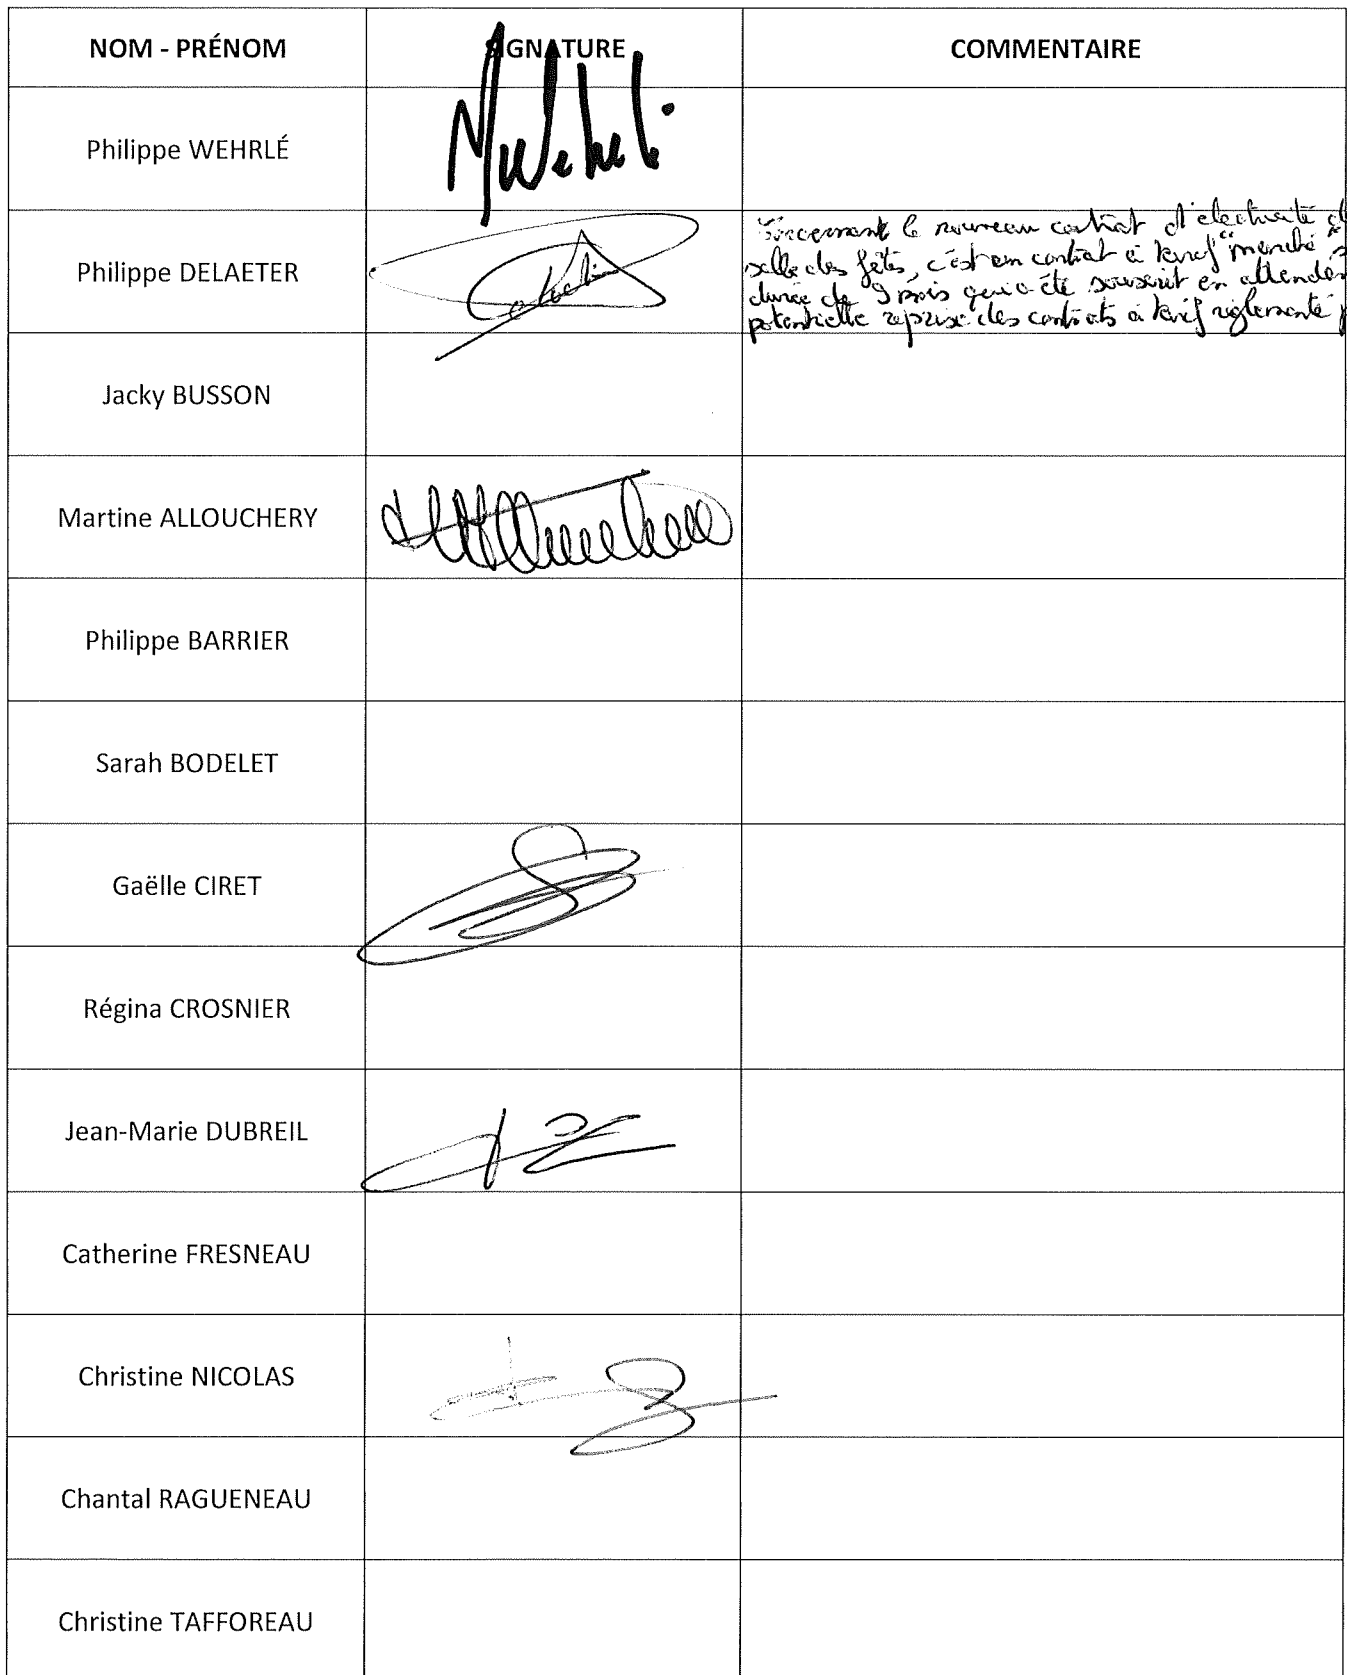 NOM - PRÉNOM SIGNATURE COMMENTAIRE
Philippe WEHRLÉ
Philippe DELAETER
concernant le nouveau contrat d'électricité d
salle des fêtes, c'est un contrat à tarif "marché" s
durée de 9 mois qui a été souscrit en attendan
potentielle reprise des contrats à tarif réglementé p
Jacky BUSSON
Martine ALLOUCHERY
Philippe BARRIER
Sarah BODELET
Gaëlle CIRET
Régina CROSNIER
Jean-Marie DUBREIL
Catherine FRESNEAU
Christine NICOLAS
Chantal RAGUENEAU
Christine TAFFOREAU